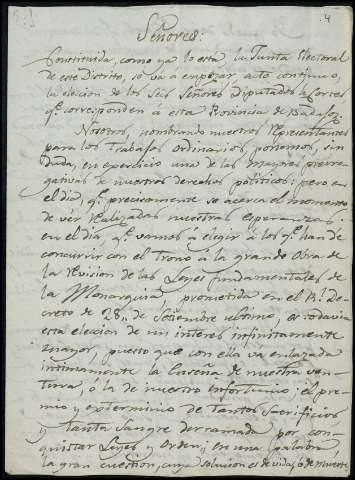 4
Señores:
Constituida, como ya lo está la Junta Electoral
de este Distrito, se vá a empezar acto continuo,
la eleccion de los Seis Señores Diputados a Cortes
qᵉ corresponden á esta Provincia de Badajoz.
Nosotros, nombrando nuestros Representantes
para los trabajos ordinarios, ponemos, sin
duda, en exercicio una de las mayores prerro-
gativas de nuestros derechos politicos: pero en
el dia, qᵉ precisamente se acerca el momento
de vér realizadas nuestras esperanzas:
en el dia, qᵉ vamos á elegir á los qᵉ han de
concurrir con el Trono a la grande Obra de
la Revision de las Leyes fundamentales de
la Monarquia, prometida en el Rˡ De-
creto de 28, de Setiembre ultimo, es todavia
esta eleccion de un interes infinitamente
mayor, puesto que con ella va enlazada
intimamente la Cadena de nuestra ven-
tura, ó la de nuestro infortunio; el pre-
mio y exterminio de tantos Sacrificios
y tanta Sangre derramada por con-
quistar Leyes y orden; en una palabra
la gran cuestion, cuya solucion es de vida, ó de muerte